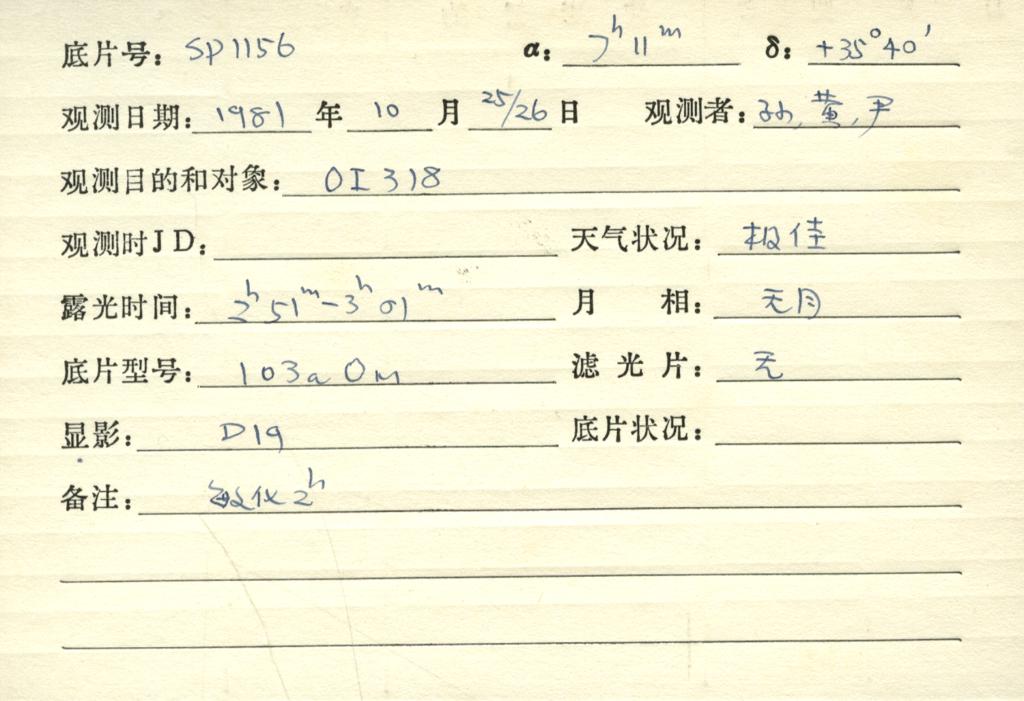 底片号: SP1156 α: 7h 11m δ: +35°40′
观测日期: 1981 年 10 月 25/26 日 观测者: 孙, 黄, 尹
观测目的和对象: OI 318
观测时JD: 天气状况: 极佳
露光时间: 2h51m-3h01m 月 相: 无月
底片型号: 103aOm 滤光片: 无
显影: D19 底片状况:
备注: 敏化2h